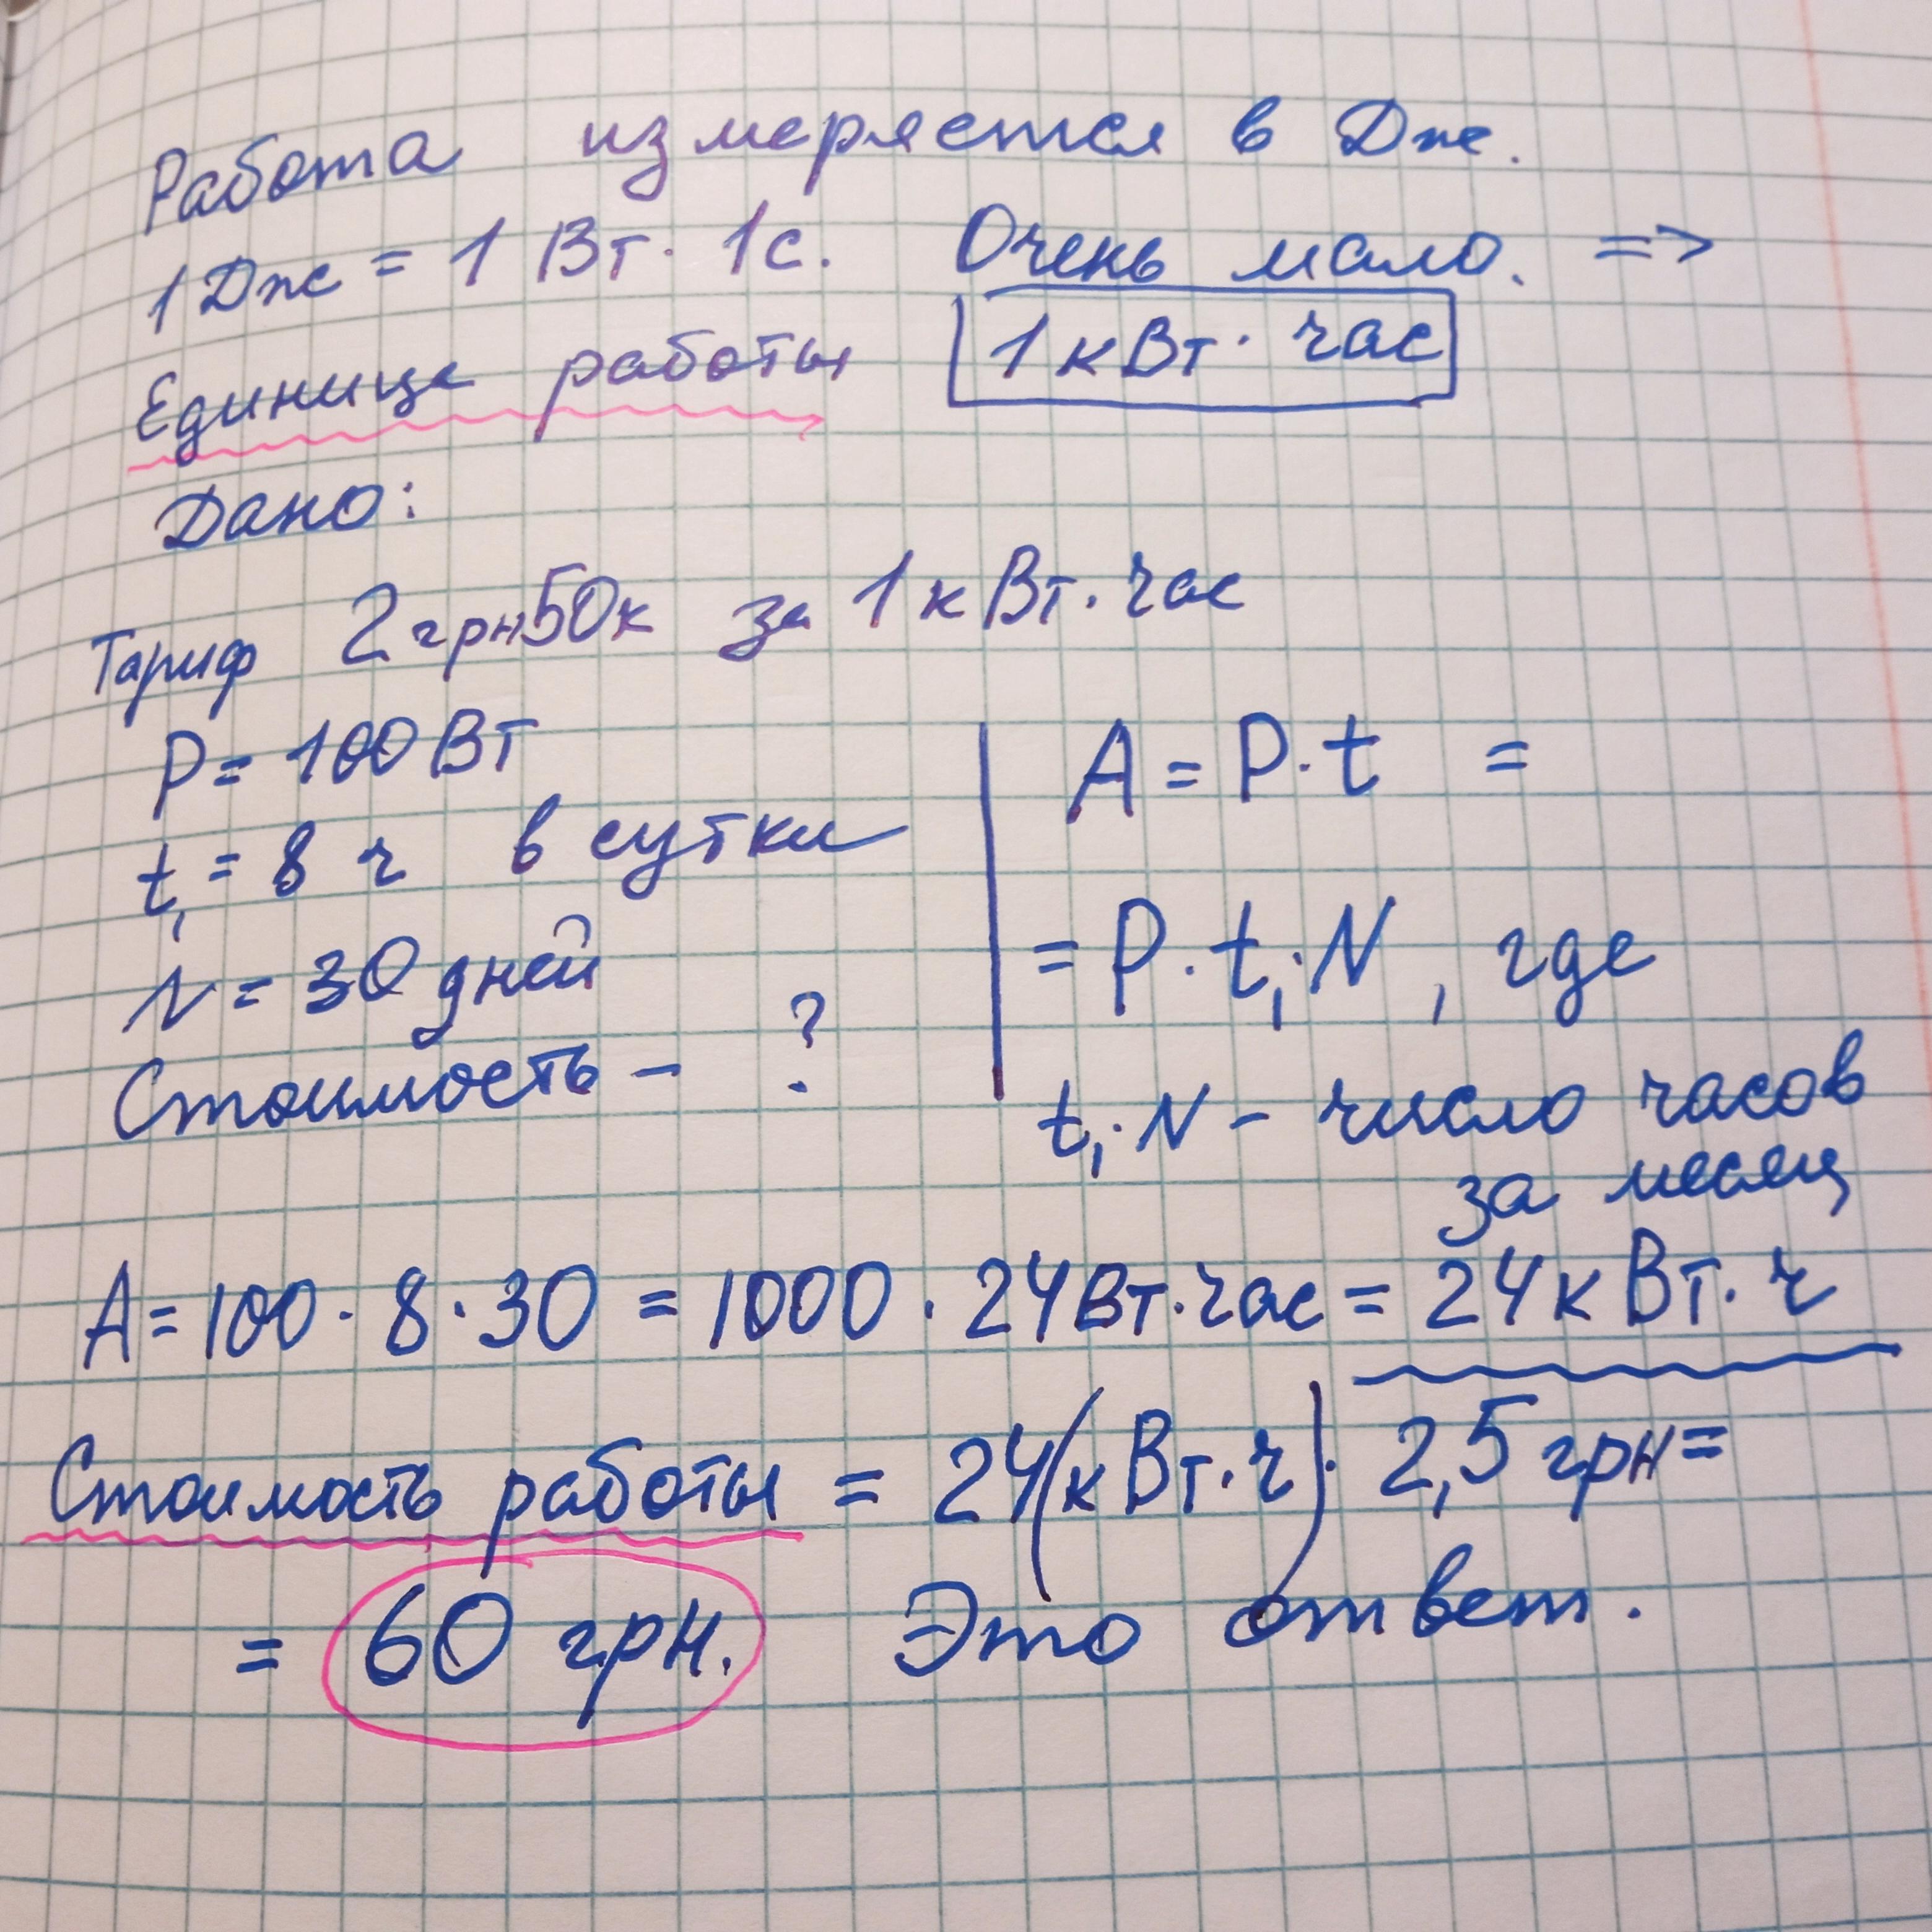 Работа измеряется в Дж.
1 Дж = 1 Вт · 1с. Очень мало. =>
Единице работы 1 кВт · час
Дано:
Тариф 2 грн 50к за 1 кВт. час
P = 100 Вт
t₁ = 8 ч в сутки
N = 30 дней
Стоимость - ?
A = P · t =
= P · t₁ · N , где
t₁ · N - число часов
за месяц
A = 100 · 8 · 30 = 1000 · 24 Вт · час = 24 к Вт · ч
Стоимость работы = 24 (к Вт · ч) · 2,5 грн =
= 60 грн. Это ответ.